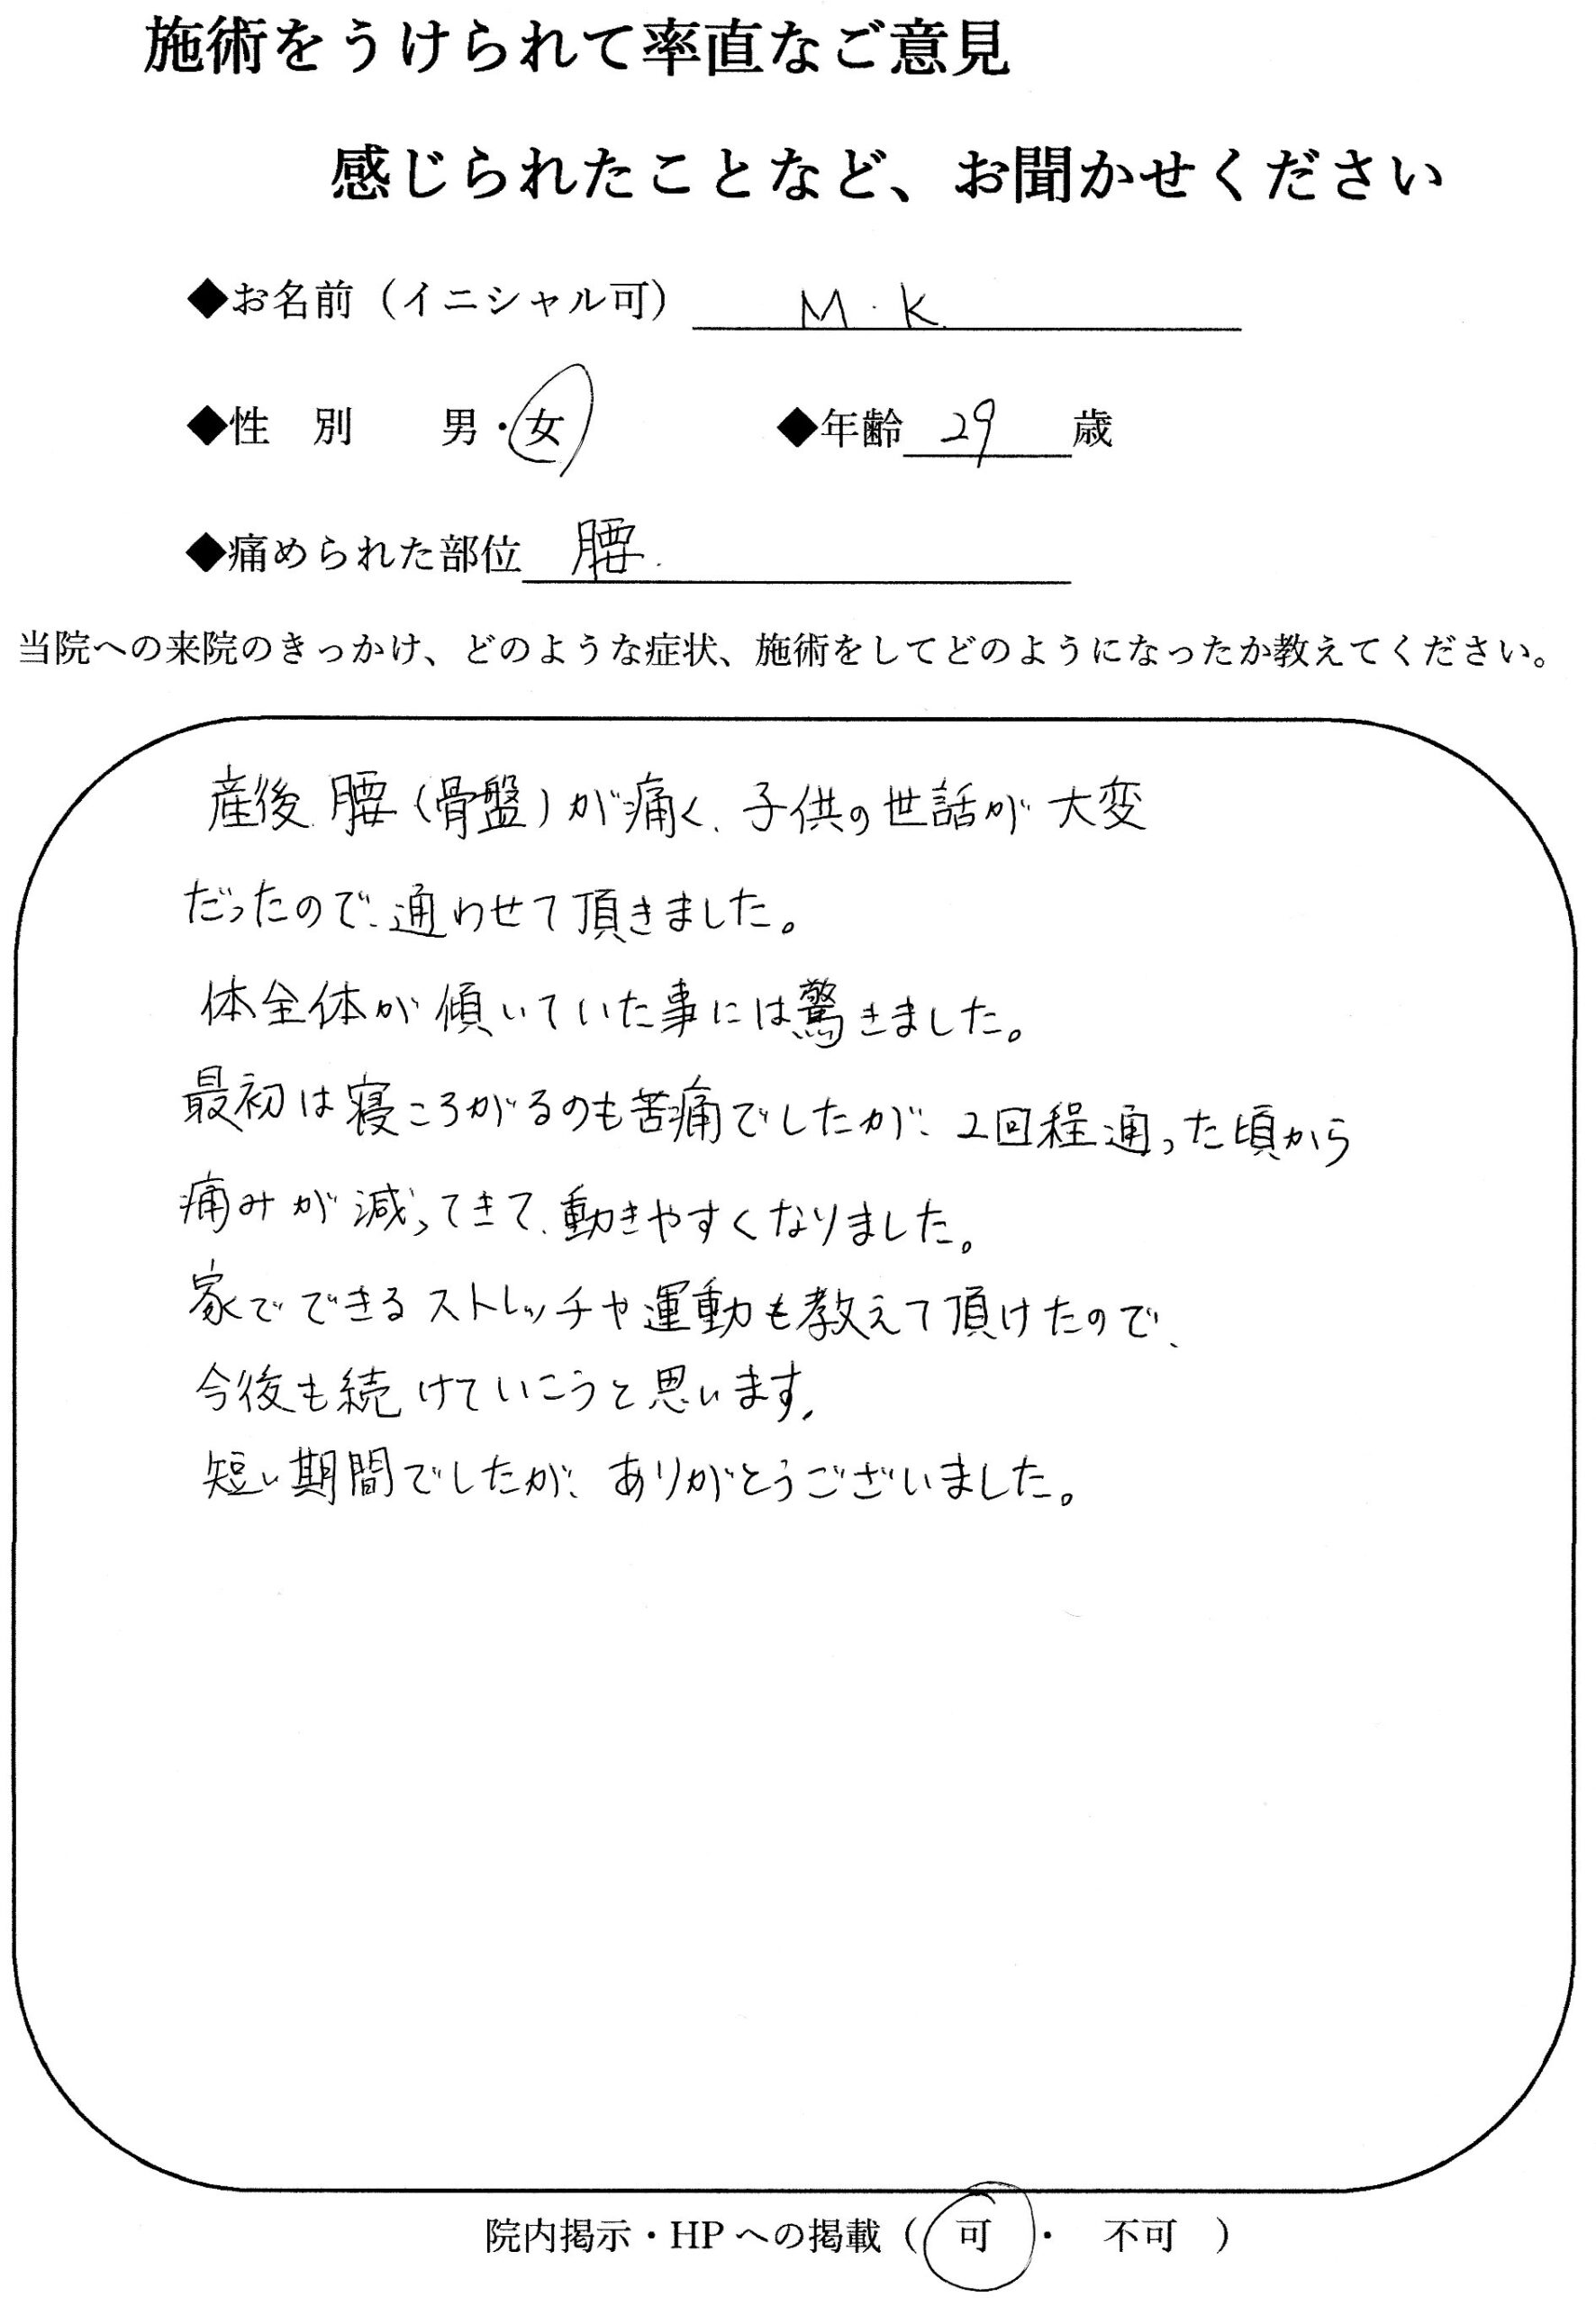 施術をうけられて率直なご意見
感じられたことなど、お聞かせください
◆お名前（イニシャル可） M・K.
◆性　別　　男・女　　◆年齢 29 歳
◆痛められた部位 腰.
当院への来院のきっかけ、どのような症状、施術をしてどのようになったか教えてください。
産後、腰（骨盤）が痛く、子供の世話が大変
だったので、通わせて頂きました。
体全体が傾いていた事には驚きました。
最初は寝ころがるのも苦痛でしたが、2回程通った頃から
痛みが減ってきて、動きやすくなりました。
家でできるストレッチや運動も教えて頂けたので、
今後も続けていこうと思います。
短い期間でしたが、ありがとうございました。
院内掲示・HPへの掲載（ 可 ・ 不可 ）